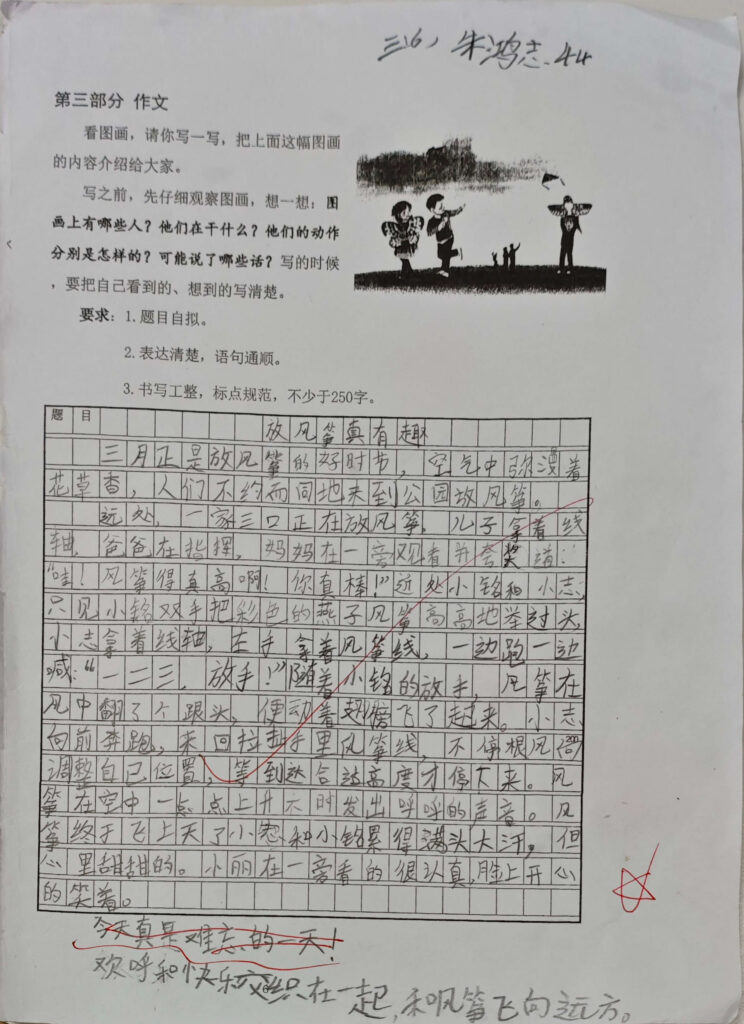 三(6) 朱鸿志 44
第三部分 作文
看图画，请你写一写，把上面这幅图画
的内容介绍给大家。
写之前，先仔细观察图画，想一想：图
画上有哪些人？他们在干什么？他们的动作
分别是怎样的？可能说了哪些话？写的时候
，要把自己看到的、想到的写清楚。
要求：1.题目自拟。
2.表达清楚，语句通顺。
3.书写工整，标点规范，不少于250字。
题 目
放风筝真有趣
三月正是放风筝的好时节，空气中弥漫着
花草香，人们不约而同地来到公园放风筝。
远处，一家三口正在放风筝，儿子拿着线
轴，爸爸在指挥，妈妈在一旁观看并夸奖道：
“哇！风筝得真高啊！你真棒！”近处小铭和小志，
只见小铭双手把彩色的燕子风筝高高地举过头，
小志拿着线轴，左手拿着风筝线，一边跑一边
喊：“一二三，放手！”随着小铭的放手，风筝在
风中翻了个跟头，便动着翅膀飞了起来。小志
向前奔跑，来回拉扯手里风筝线，不停根风
调整自己位置，等到达合适高度才停下来。风
筝在空中一点点上升不时发出呼呼的声音。风
筝终于飞上天了小志和小铭累得满头大汗，但
心里甜甜的。小丽在一旁看的很认真，脸上开心
的笑着。
今天真是难忘的一天！
欢呼和快乐交织在一起，和风筝飞向远方。